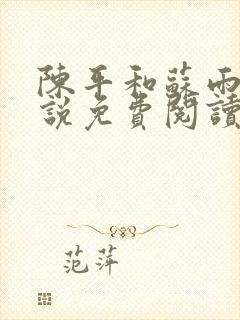 陳平和蘇雨
說免費閱讀
范萍